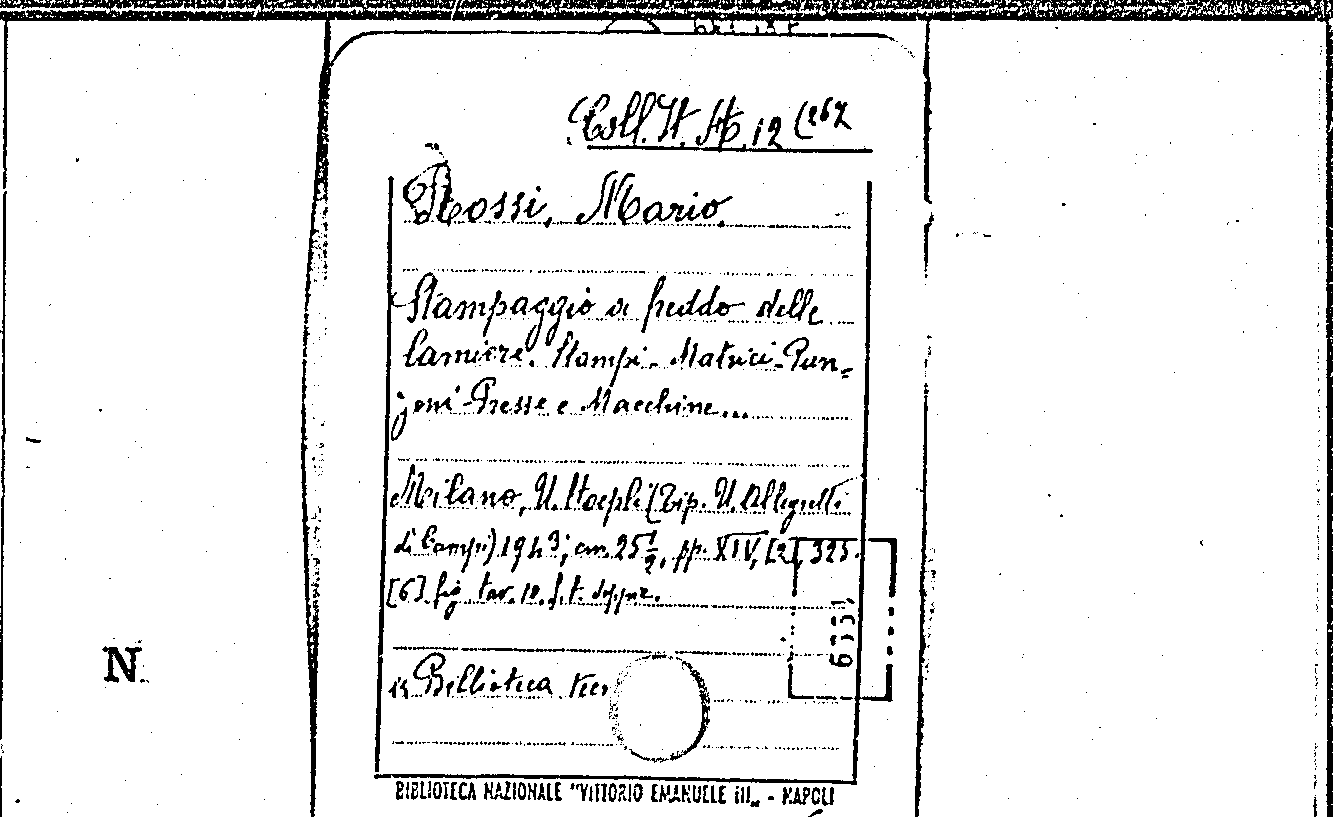 Coll. It. Ap. 12 (267
Rossi, Mario.
Stampaggio a freddo delle
lamiere. Stampi - Matrici - Pun=
zoni - Presse e Macchine...
Milano, U. Hoepli (Tip. U. Allegretti
di Campi) 1943; cm. 25 1/2, pp. XIV, [2], 325.
[6] fig tav. 10. f. t. doppie.
Biblioteca tec
BIBLIOTECA NAZIONALE "VITTORIO EMANUELE III„ - NAPOLI
N